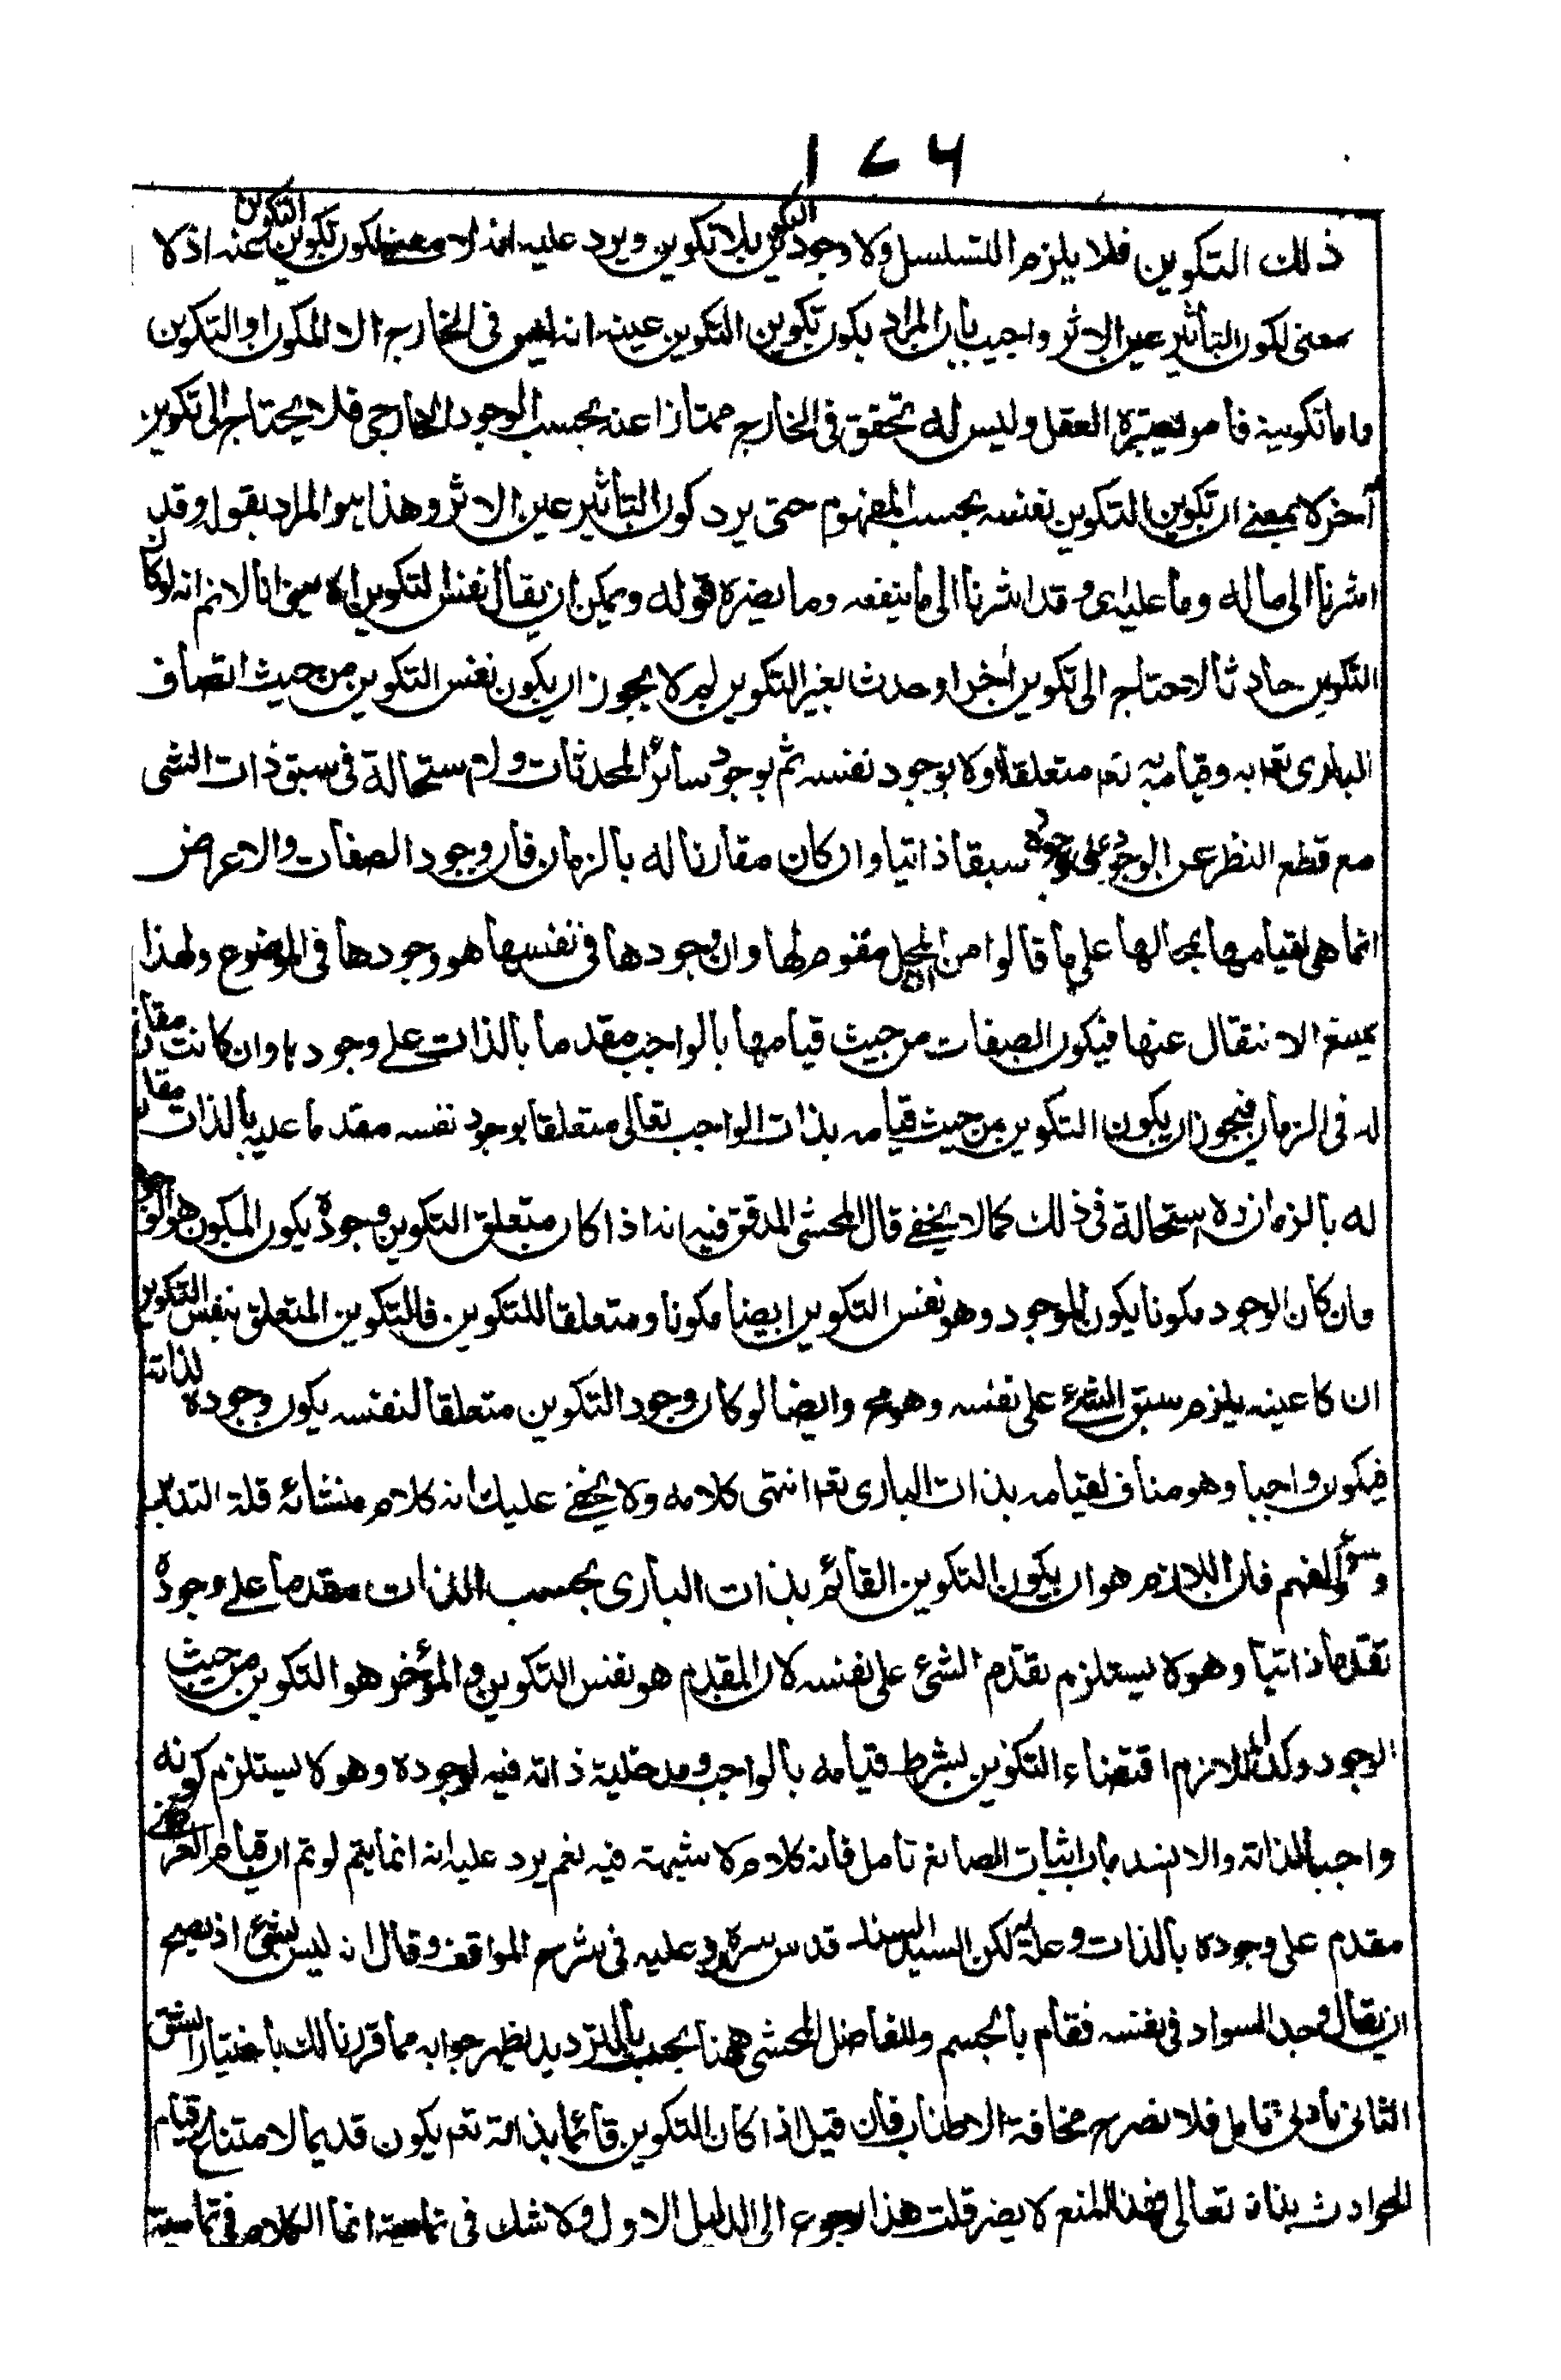 ١٧٦
ذلك التكوين فلا يلزم التسلسل ولا وجود التكوين بلا تكوين ويرد عليه انه لا معنى لكون تكوين التكوين عينه اذ لا
معنى لكون التأثير عين الاثر واجيب بأن المراد بكون تكوين التكوين عينه انه ليس فى الخارج الا المكون او التكوين
واما تكوينه فأمر يعتبره العقل وليس له تحقق فى الخارج ممتازا عنه بحسب الوجود الخارجى فلا يحتاج الى تكوين
آخر لا بمعنى ان تكوين التكوين نفسه بحسب المفهوم حتى يرد كون التأثير عين الاثر وهذا هو المراد بقوله وقد
اشرنا الى ما له وما عليه اى وقد اشرنا الى ما ينفعه وما يضره قوله ويمكن ان يقال نفس التكوين اه يعنى انا لا نم انه لو كان
التكوين حادثا لاحتاج الى تكوين آخر او حدث بغير التكوين لم لا يجوز ان يكون نفس التكوين من حيث اتصاف
البارى تعم به وقيامه به تعم متعلقا اولا بوجود نفسه ثم بوجود سائر المحدثات ولا استحالة فى سبق ذات الشى
مع قطع النظر عن الوجود على وجوده سبقا ذاتيا وان كان مقارنا له بالزمان فأن وجود الصفات والاعراض
انما هى لقيامها بمحالها على ما قالوا من ان المحل مقوم لها وان وجودها فى نفسها هو وجودها فى الموضوع ولهذا
يمتنع الانتقال عنها فيكون الصفات من حيث قيامها بالواجب مقدما بالذات على وجودها وان كانت مقارنة
له فى الزمان فيجوز ان يكون التكوين من حيث قيامه بذات الواجب تعالى متعلقا بوجود نفسه مقدما عليه بالذات مقارنا
له بالزمان ولا استحالة فى ذلك كما لا يخفى قال المحشى المدقق فيه انه اذا كان متعلق التكوين وجوده يكون المكون هو الوجود
وان كان الوجود مكونا يكون الموجود وهو نفس التكوين ايضا مكونا ومتعلقا للتكوين فالتكوين المتعلق بنفس التكوين
ان كا عينه يلزم سبق الشئ على نفسه وهو مح وايضا لو كان وجود التكوين متعلقا لنفسه يكون وجوده لذاته
فيكون واجبا وهو مناف لقيامه بذات البارى تعم انتهى كلامه ولا يخفى عليك انه كلام منشائه قلة التدبر
وسوء الفهم فان اللازم هو ان يكون التكوين القائم بذات البارى بحسب الذات مقدما على وجوده
تقدما ذاتيا وهو لا يستلزم تقدم الشئ على نفسه لان المقدم هو نفس التكوين والمؤخر هو التكوين من حيث
الوجود وكذا اللازم اقتضاء التكوين بشرط قيامه بالواجب ومدخلية ذاته فيه لوجوده وهو لا يستلزم كونه
واجبا لذاته والا ينسد باب اثبات الصانع تأمل فانه كلام لا شبهة فيه نعم يرد عليه انه انما يتم لو تم ان قيام العرض
مقدم على وجوده بالذات وعلة له لكن السيد السند قدس سره رد عليه فى شرح المواقف وقال انه ليس بشئ اذ يصح
ان يقال وجد السواد فى نفسه فقام بالجسم وللفاضل المحشى ههنا بحث بالترديد يظهر جوابه مما قررنا لك بأختيار الشق
الثانى بأدنى تأمل فلا نصرح مخافة الاطناب فان قيل اذا كان التكوين قائما بذاته تعم يكون قديما لامتناع قيام
الحوادث بذاته تعالى فهذا المنع لا يضر قلت هذا رجوع الى الدليل الاول ولا شك فى تماميته انما الكلام فى تمامية